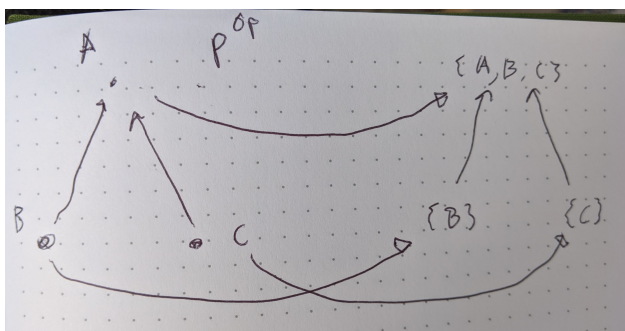 A P^op {A, B, C}
B C {B} {C}